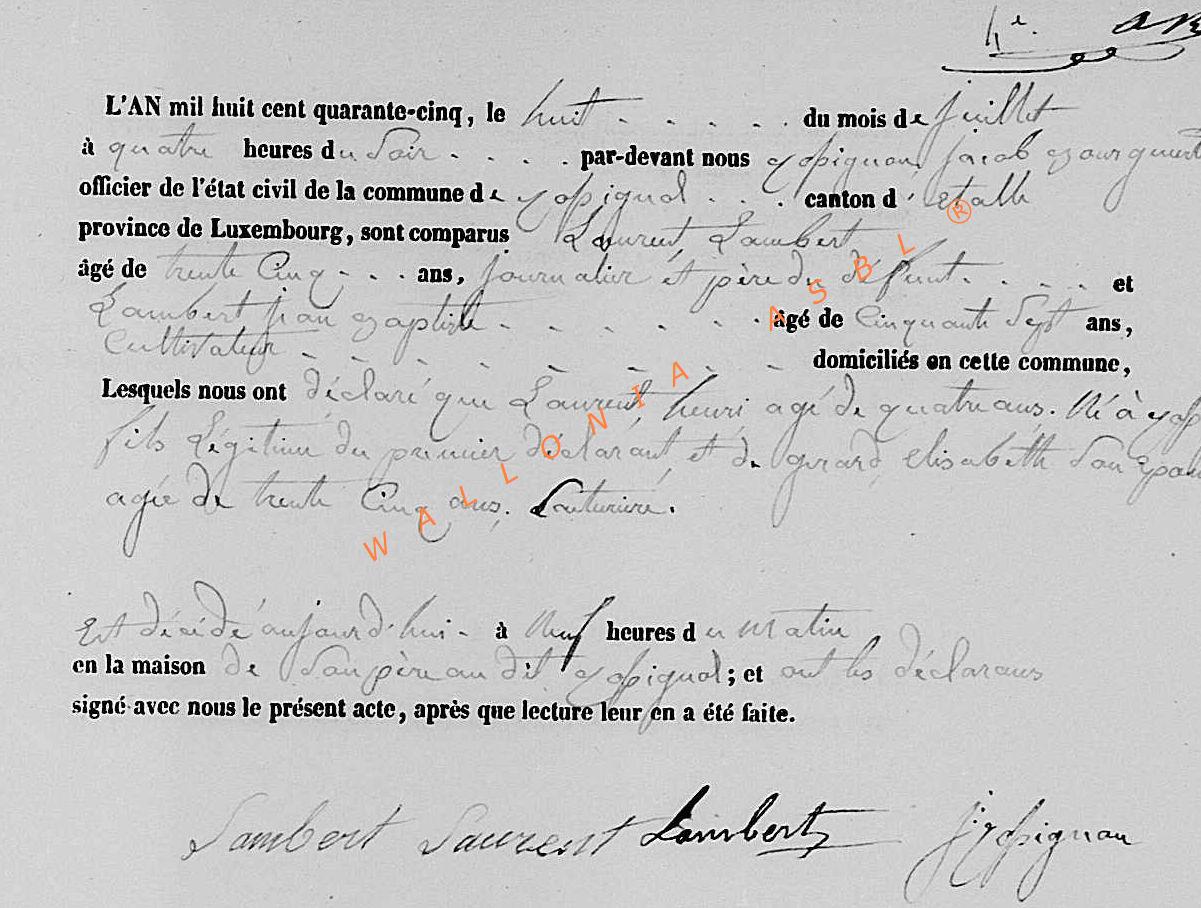 4e.
L'AN mil huit cent quarante-cinq, le huit . . . . . du mois de juillet
à quatre heures du Soir . . . . par-devant nous jacob
officier de l'état civil de la commune de . . . canton d'Etalle
province de Luxembourg, sont comparus Laurent Lambert
âgé de trente Cinq . . . ans, journalier et père du défunt . . . . et
Lambert jean Baptiste . . . . . . . âgé de Cinquante Sept ans,
Cultivateur - - - - - - - - domiciliés en cette commune,
Lesquels nous ont déclaré que Laurent henri agé de quatre ans. Né à
fils Légitime du premier déclarant et de gerard elisabeth Son
agée de trente Cinq ans. Couturière.
Est décédé aujourd'hui - à Neuf heures du Matin
en la maison de Son père au dit ; et ont les déclarans
signé avec nous le présent acte, après que lecture leur en a été faite.
Lambert Laurent Lambert
WALLONIA ASBL ®